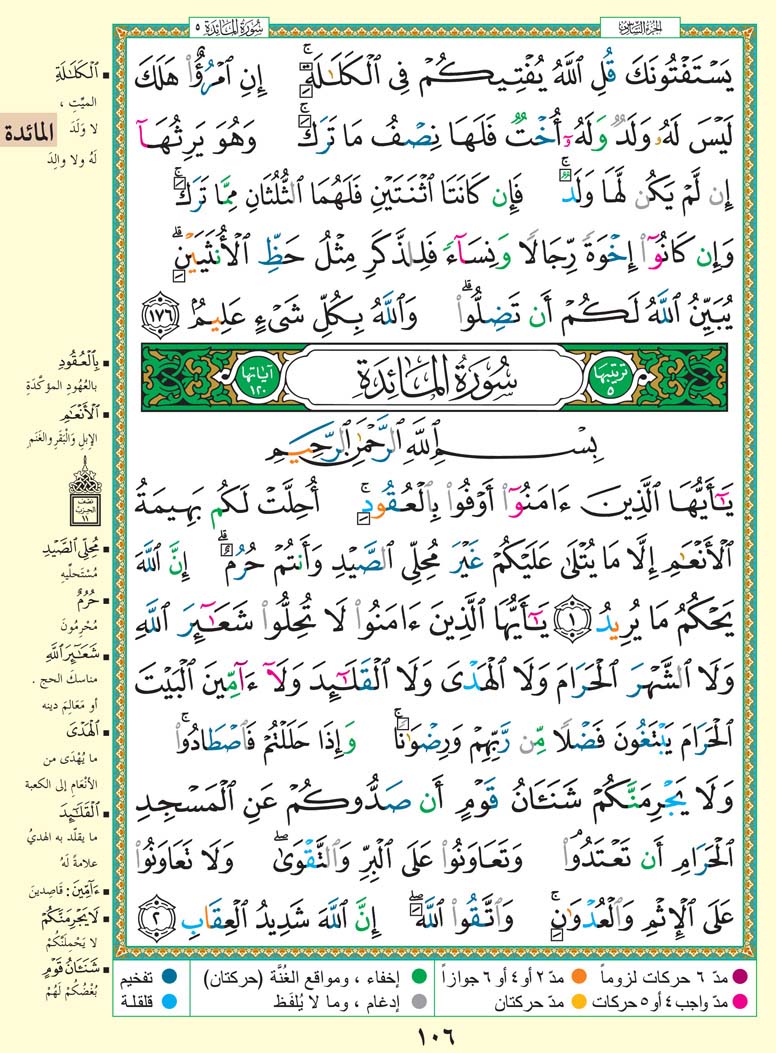 الجزء السادس
سورة المائدة ٥
يَسْتَفْتُونَكَ قُلِ ٱللَّهُ يُفْتِيكُمْ فِى ٱلْكَلَـٰلَةِ ۚ إِنِ ٱمْرُؤٌا۟ هَلَكَ
لَيْسَ لَهُۥ وَلَدٌ وَلَهُۥٓ أُخْتٌ فَلَهَا نِصْفُ مَا تَرَكَ ۚ وَهُوَ يَرِثُهَآ
إِن لَّمْ يَكُن لَّهَا وَلَدٌ ۚ فَإِن كَانَتَا ٱثْنَتَيْنِ فَلَهُمَا ٱلثُّلُثَانِ مِمَّا تَرَكَ ۚ
وَإِن كَانُوٓا۟ إِخْوَةً رِّجَالًا وَنِسَآءً فَلِلذَّكَرِ مِثْلُ حَظِّ ٱلْأُنثَيَيْنِ ۗ
يُبَيِّنُ ٱللَّهُ لَكُمْ أَن تَضِلُّوا۟ ۗ وَٱللَّهُ بِكُلِّ شَىْءٍ عَلِيمٌۢ ١٧٦
ترتيبها ٥
سُورَةُ المَائدَة
آياتها ١٢٠
بِسْمِ ٱللَّهِ ٱلرَّحْمَـٰنِ ٱلرَّحِيمِ
يَـٰٓأَيُّهَا ٱلَّذِينَ ءَامَنُوٓا۟ أَوْفُوا۟ بِٱلْعُقُودِ ۚ أُحِلَّتْ لَكُم بَهِيمَةُ
ٱلْأَنْعَـٰمِ إِلَّا مَا يُتْلَىٰ عَلَيْكُمْ غَيْرَ مُحِلِّى ٱلصَّيْدِ وَأَنتُمْ حُرُمٌ ۗ إِنَّ ٱللَّهَ
يَحْكُمُ مَا يُرِيدُ ١ يَـٰٓأَيُّهَا ٱلَّذِينَ ءَامَنُوا۟ لَا تُحِلُّوا۟ شَعَـٰٓئِرَ ٱللَّهِ
وَلَا ٱلشَّهْرَ ٱلْحَرَامَ وَلَا ٱلْهَدْىَ وَلَا ٱلْقَلَـٰٓئِدَ وَلَآ ءَآمِّينَ ٱلْبَيْتَ
ٱلْحَرَامَ يَبْتَغُونَ فَضْلًا مِّن رَّبِّهِمْ وَرِضْوَٰنًا ۚ وَإِذَا حَلَلْتُمْ فَٱصْطَادُوا۟ ۚ
وَلَا يَجْرِمَنَّكُمْ شَنَـَٔانُ قَوْمٍ أَن صَدُّوكُمْ عَنِ ٱلْمَسْجِدِ
ٱلْحَرَامِ أَن تَعْتَدُوا۟ ۘ وَتَعَاوَنُوا۟ عَلَى ٱلْبِرِّ وَٱلتَّقْوَىٰ ۖ وَلَا تَعَاوَنُوا۟
عَلَى ٱلْإِثْمِ وَٱلْعُدْوَٰنِ ۚ وَٱتَّقُوا۟ ٱللَّهَ ۖ إِنَّ ٱللَّهَ شَدِيدُ ٱلْعِقَابِ ٢
ٱلْكَلَـٰلَةِ
الميّتِ ،
لا وَلَدَ
لَهُ ولا والِدَ
المائدة
بِٱلْعُقُودِ
بالعُهُودِ المؤكّدَةِ
ٱلْأَنْعَـٰمِ
الإبلِ وَالْبَقَرِ والغَنَمِ
نصف الحزب ١١
مُحِلِّى ٱلصَّيْدِ
مُسْتَحلّيهِ
حُرُمٌ
مُحْرِمُونَ
شَعَـٰٓئِرَ ٱللَّهِ
مناسكَ الحج .
أو مَعَالِمَ دينه
ٱلْهَدْىَ
ما يُهْدَى من
الأنْعَامِ إلى الكعبة
ٱلْقَلَـٰٓئِدَ
ما يقلّد به الهديُ
علامةً لَهُ
ءَآمِّينَ : قَاصِدِينَ
لَا يَجْرِمَنَّكُمْ
لا يَحْمِلَنَّكُمْ
شَنَـَٔانُ قَوْمٍ
بُغْضُكُمْ لَهُمْ
مدّ ٦ حركات لزوماً
مدّ ٢ أو ٤ أو ٦ جوازاً
إخفاء ، ومواقع الغُنَّة (حركتان)
تفخيم
مدّ واجب ٤ أو ٥ حركات
مدّ حركتان
إدغام ، وما لا يُلفَظ
قلقلة
١٠٦